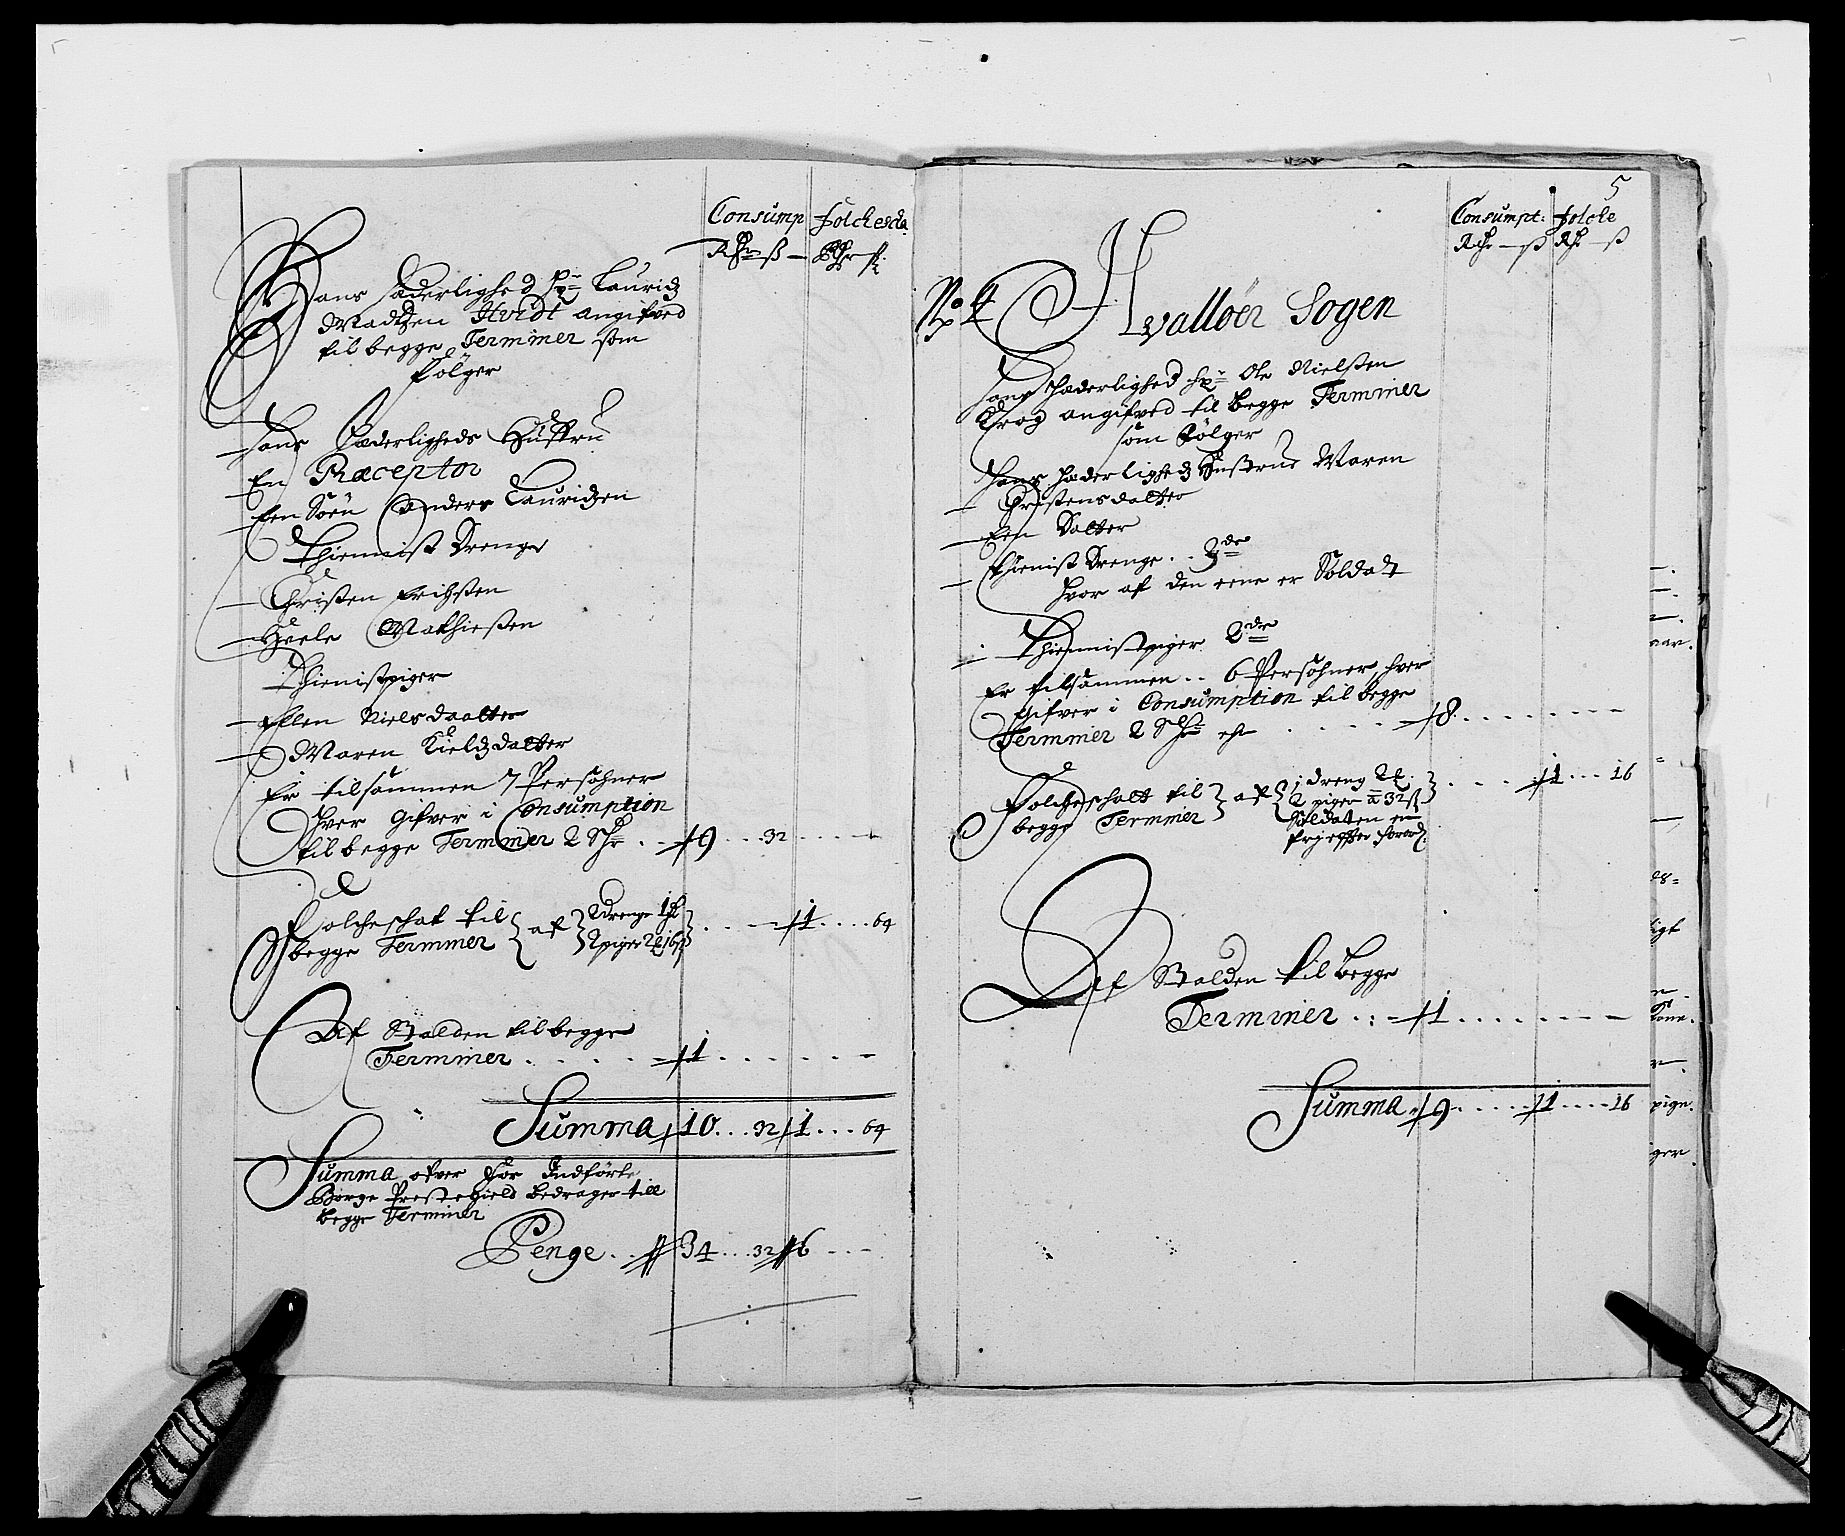 Consump Folchesch
Rdr ß Rdr ß
Hans Hæderlighed Hr Lauridz
Madtzen Hvidt angifved
til begge Terminer som
Følger
Hans Hæderligheds Hustru
En Præceptor
Een Søn Anders Lauridzen
Thienniste Drenge
Christen Erichsen
Peele Mathiesen
Thienistpiger
Ellen Nielsdaatter
Maren Kieldzdatter
Er tilsammen 7 Persohner
Hver Gifver i Consumption
til begge Terminer 2 Schr 9 32
Folcheschat til
begge Terminer af 2 drenge 1 2 piger 16 ß 1 64
Af Stalden til begge
Terminer 1
Summa 10 32 1 64
Summa ofver For Indførte
Borge Prestegield bedrager till
begge Terminer
Penge 34 32 6
5
Consumpt: Folche
Rdr ß Rdr ß
No 4 Hvalløer Sogen
Hans Hæderlighed Hr Ole Nielsen
Krog angifved til begge Terminer
som Følger
Hans Hæderligheds Hustrue Maren
Christensdatter
Een Datter
Thienist Drenge
Hvor af den eene er Soldat
Thiennistpiger 2de
Er tilsammen 6 Persohner, hver
Gifver i Consumption til begge
Terminer 2 Schr 8
Folcheschatt til
begge Terminer af 1 dreng 2 piger a 32 ß 1 16
Soldaten er
fri
Af Stalden til begge
Terminer 1
Summa 9 1 16